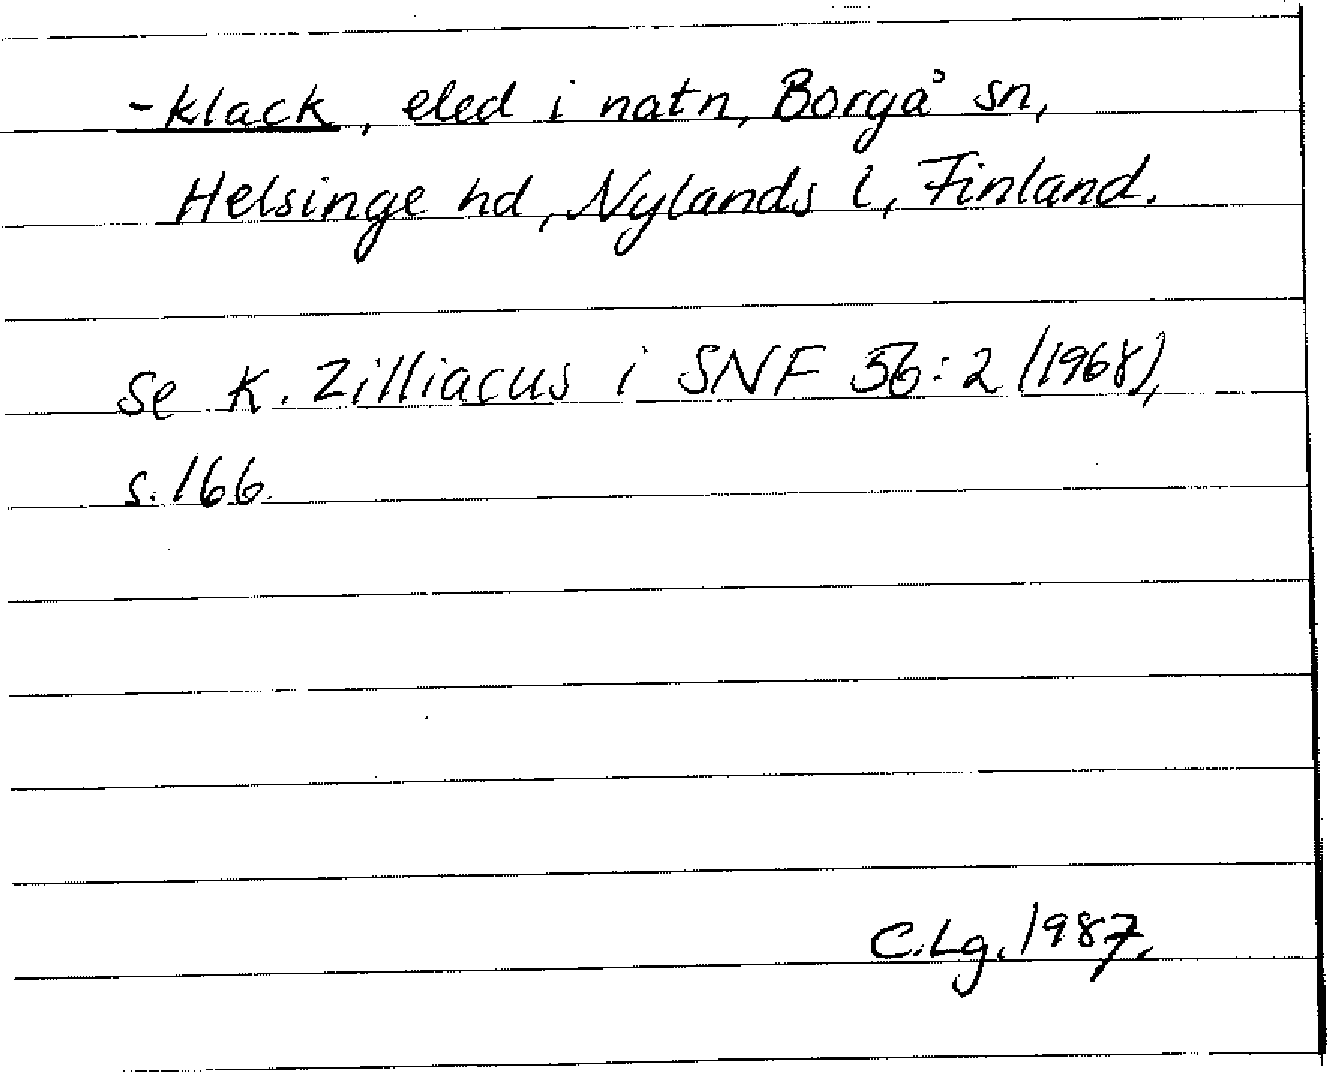 -klack, eled i natn, Borgå sn,
Helsinge hd, Nylands l, Finland.
Se K. Zilliacus i SNF 56:2 (1968),
s. 166.
C.Lg. 1987.